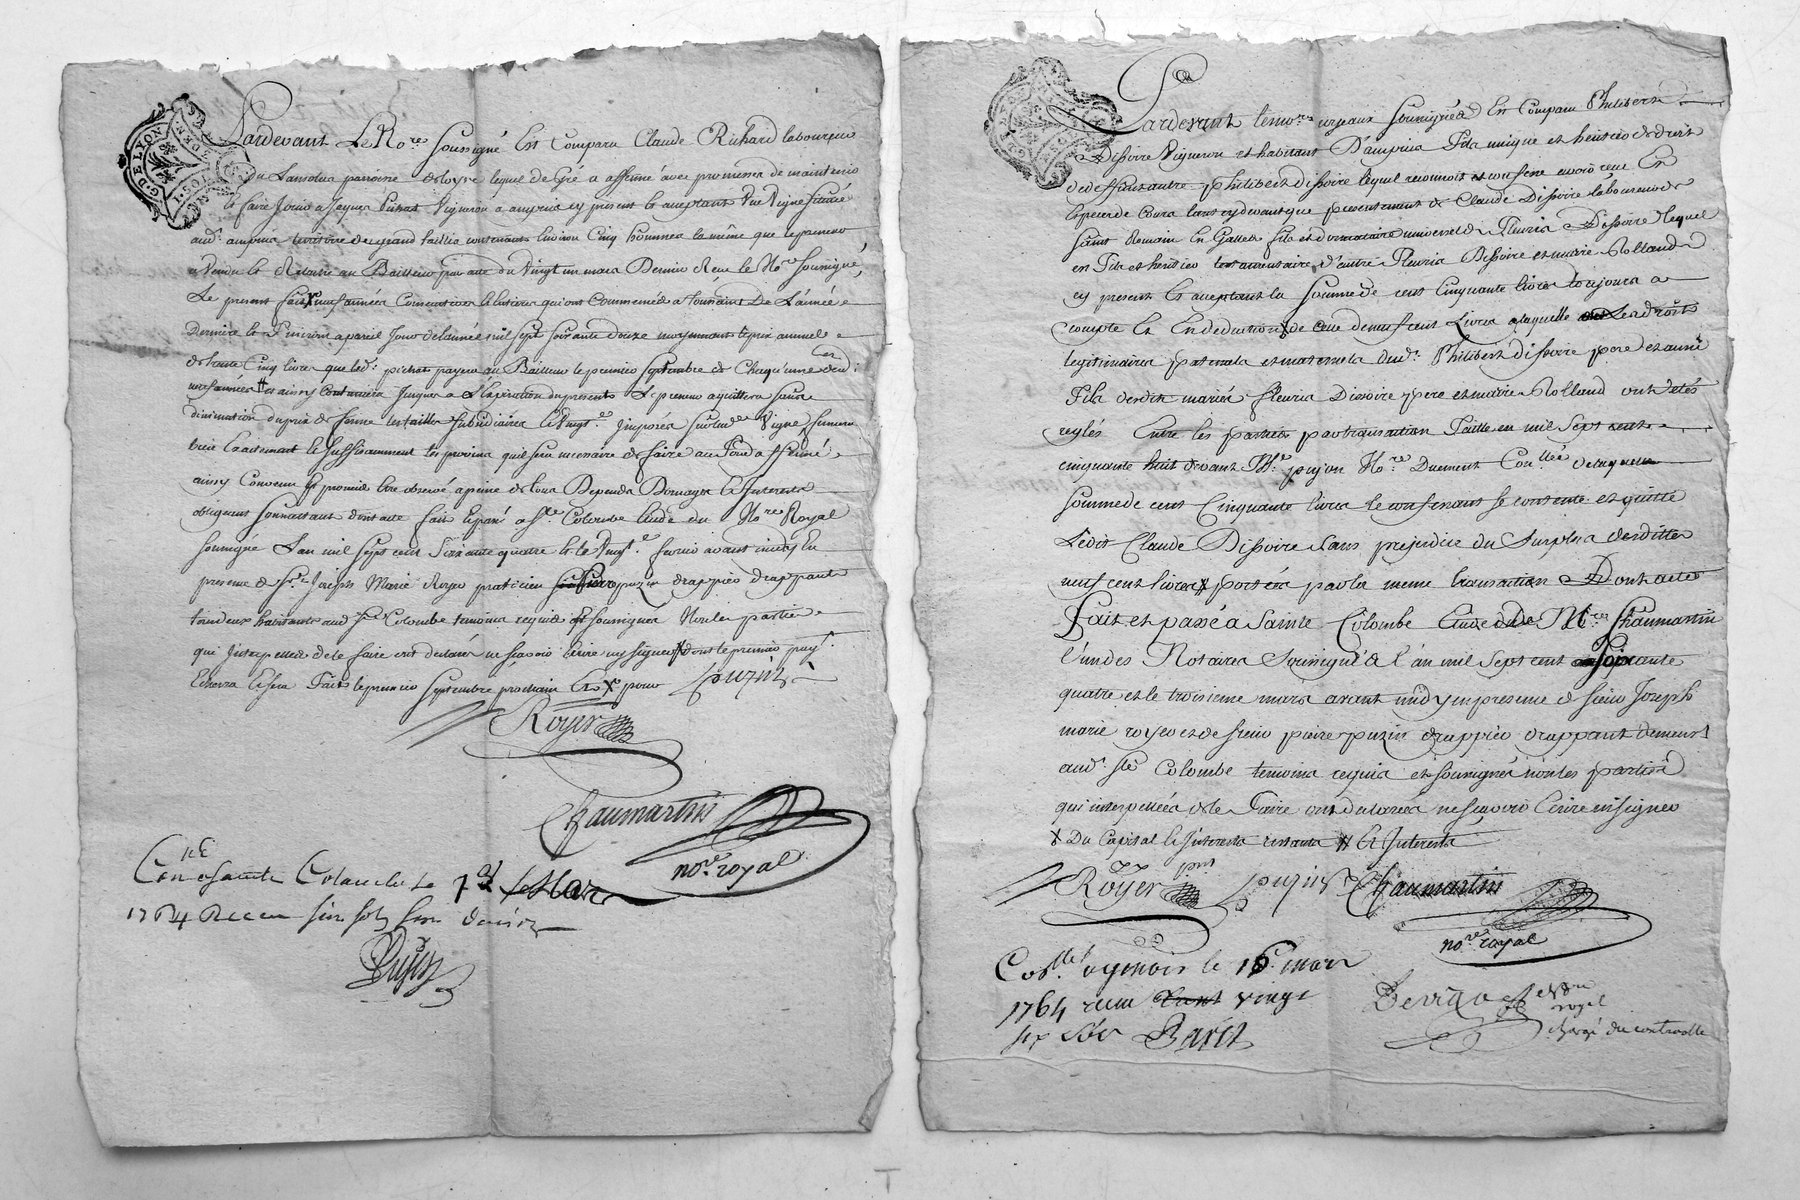 G. DE LYON
Pardevant Le No.re Soussigné Est Comparu Claude Richard laboureur
paroisse de loyre lequel de Gré a affermé avec promesse de maintenir
et faire Jouir a Jaques Pichat Vigneron a ampuis cy present et acceptant Une Vigne située
aud. ampuis territoire du grand taillia contenant Environ Cinq hommes la même que le preneur
a Vendu et Relaché au Bailleur par acte du Vingt un mars Dernier Reçu le No.re soussigné,
Le present fait neuf années Consecutives et entieres qui ont Commencé a la Toussaint De L'année
Derniere et finiront a pareil Jour de l'année mil sept soixante douze moyennant le prix annuel
de trente Cinq livres que led. pichat payera au Bailleur le premier septembre de Chaqu'une desd.
neuf années et ainsy Continuera Jusques a L'Expiration du present Le preneur acquittera sans
diminution du prix de ferme les tailles subsidiaires et Vingt.e Imposés sur lad.e Vigne
Exactement et suffisamment les provins qu'il sera necessaire de faire au fond affermé
ainsy Convenu et promis Etre observé a peine de tous Depends Domages et Interests
obligeant soumettant dont acte fait et passé a S.te Colombe Etude du No.re Royal
soussigné L'an mil sept cent soixante quatre et le Vingt.e fevrier avant midy En
presence de S.r Joseph Marie Royer praticien et pierre puzin drappier drappant
tous deux habitants aud. S.te Colombe temoins requis et soussignés Non les parties
qui Interpellées de le faire ont declaré ne sçavoir Ecrire ny signer dont le premier pay.t
Echerra et sera fait le premier septembre prochain et pour
puzin
Royer
Chaumartin
no.re royal
Con.lé a Sainte Colombe le 1.er Mars
1764 Receu six sols six deniers
Dujon
Pardevant le no.re royaux soussignés Est Comparu Philibert
Dissoire Vigneron et habitant D'ampuis Fils unique et heritier de droit
de deffunt autre Philibert dissoire lequel reconnoit et confesse avoir reçu En
Especes de Cours tant cy devant que presentement de Claude Dissoire laboureur de
saint Romain En Gallet fils et donnataire universel de Fleuris Dissoire lequel
en Fils et heritier testamentaire d'autre Fleuris Dissoire et marie Rolland
cy present Et acceptant la Somme de cent Cinquante livres toujours a
compte Et En deduction de celle de neuf cent Livres a laquelle Les droits
legitimaires paternels et maternels dud. Philibert dissoire pere et aussi
Fils desdits mariés fleuris Dissoire pere et marie Rolland ont Etés
reglés Entre les parties par transaction Faitte en mil sept cent
cinquante huit devant M.e pujon No.re Duement Con.llée de laquelle
somme de cent Cinquante livres le confessant se contente et quitte
Ledit Claude Dissoire sans prejudice du Surplus desdittes
neuf cent livres portées par la meme transaction Dont acte
Fait et passé a Sainte Colombe Etude de M.e Chaumartin
l'un des Notaires soussignés L'an mil sept cent soixante
quatre et le troisieme mars avant midy en presence de sieur Joseph
marie royer et de sieur pierre puzin drappier drappant demeur.t
aud. S.te Colombe temoins requis et soussignés non les parties
qui interpellées de le Faire ont declarés ne sçavoir Ecrire ni signer
x Du Capital et Interests restants # Et Interests
Royer pnt puzin Chaumartin
no.re royal
Con.llé a le 16 mars
1764 reçu vingt
six sols Barit
royal
chargé du controlle